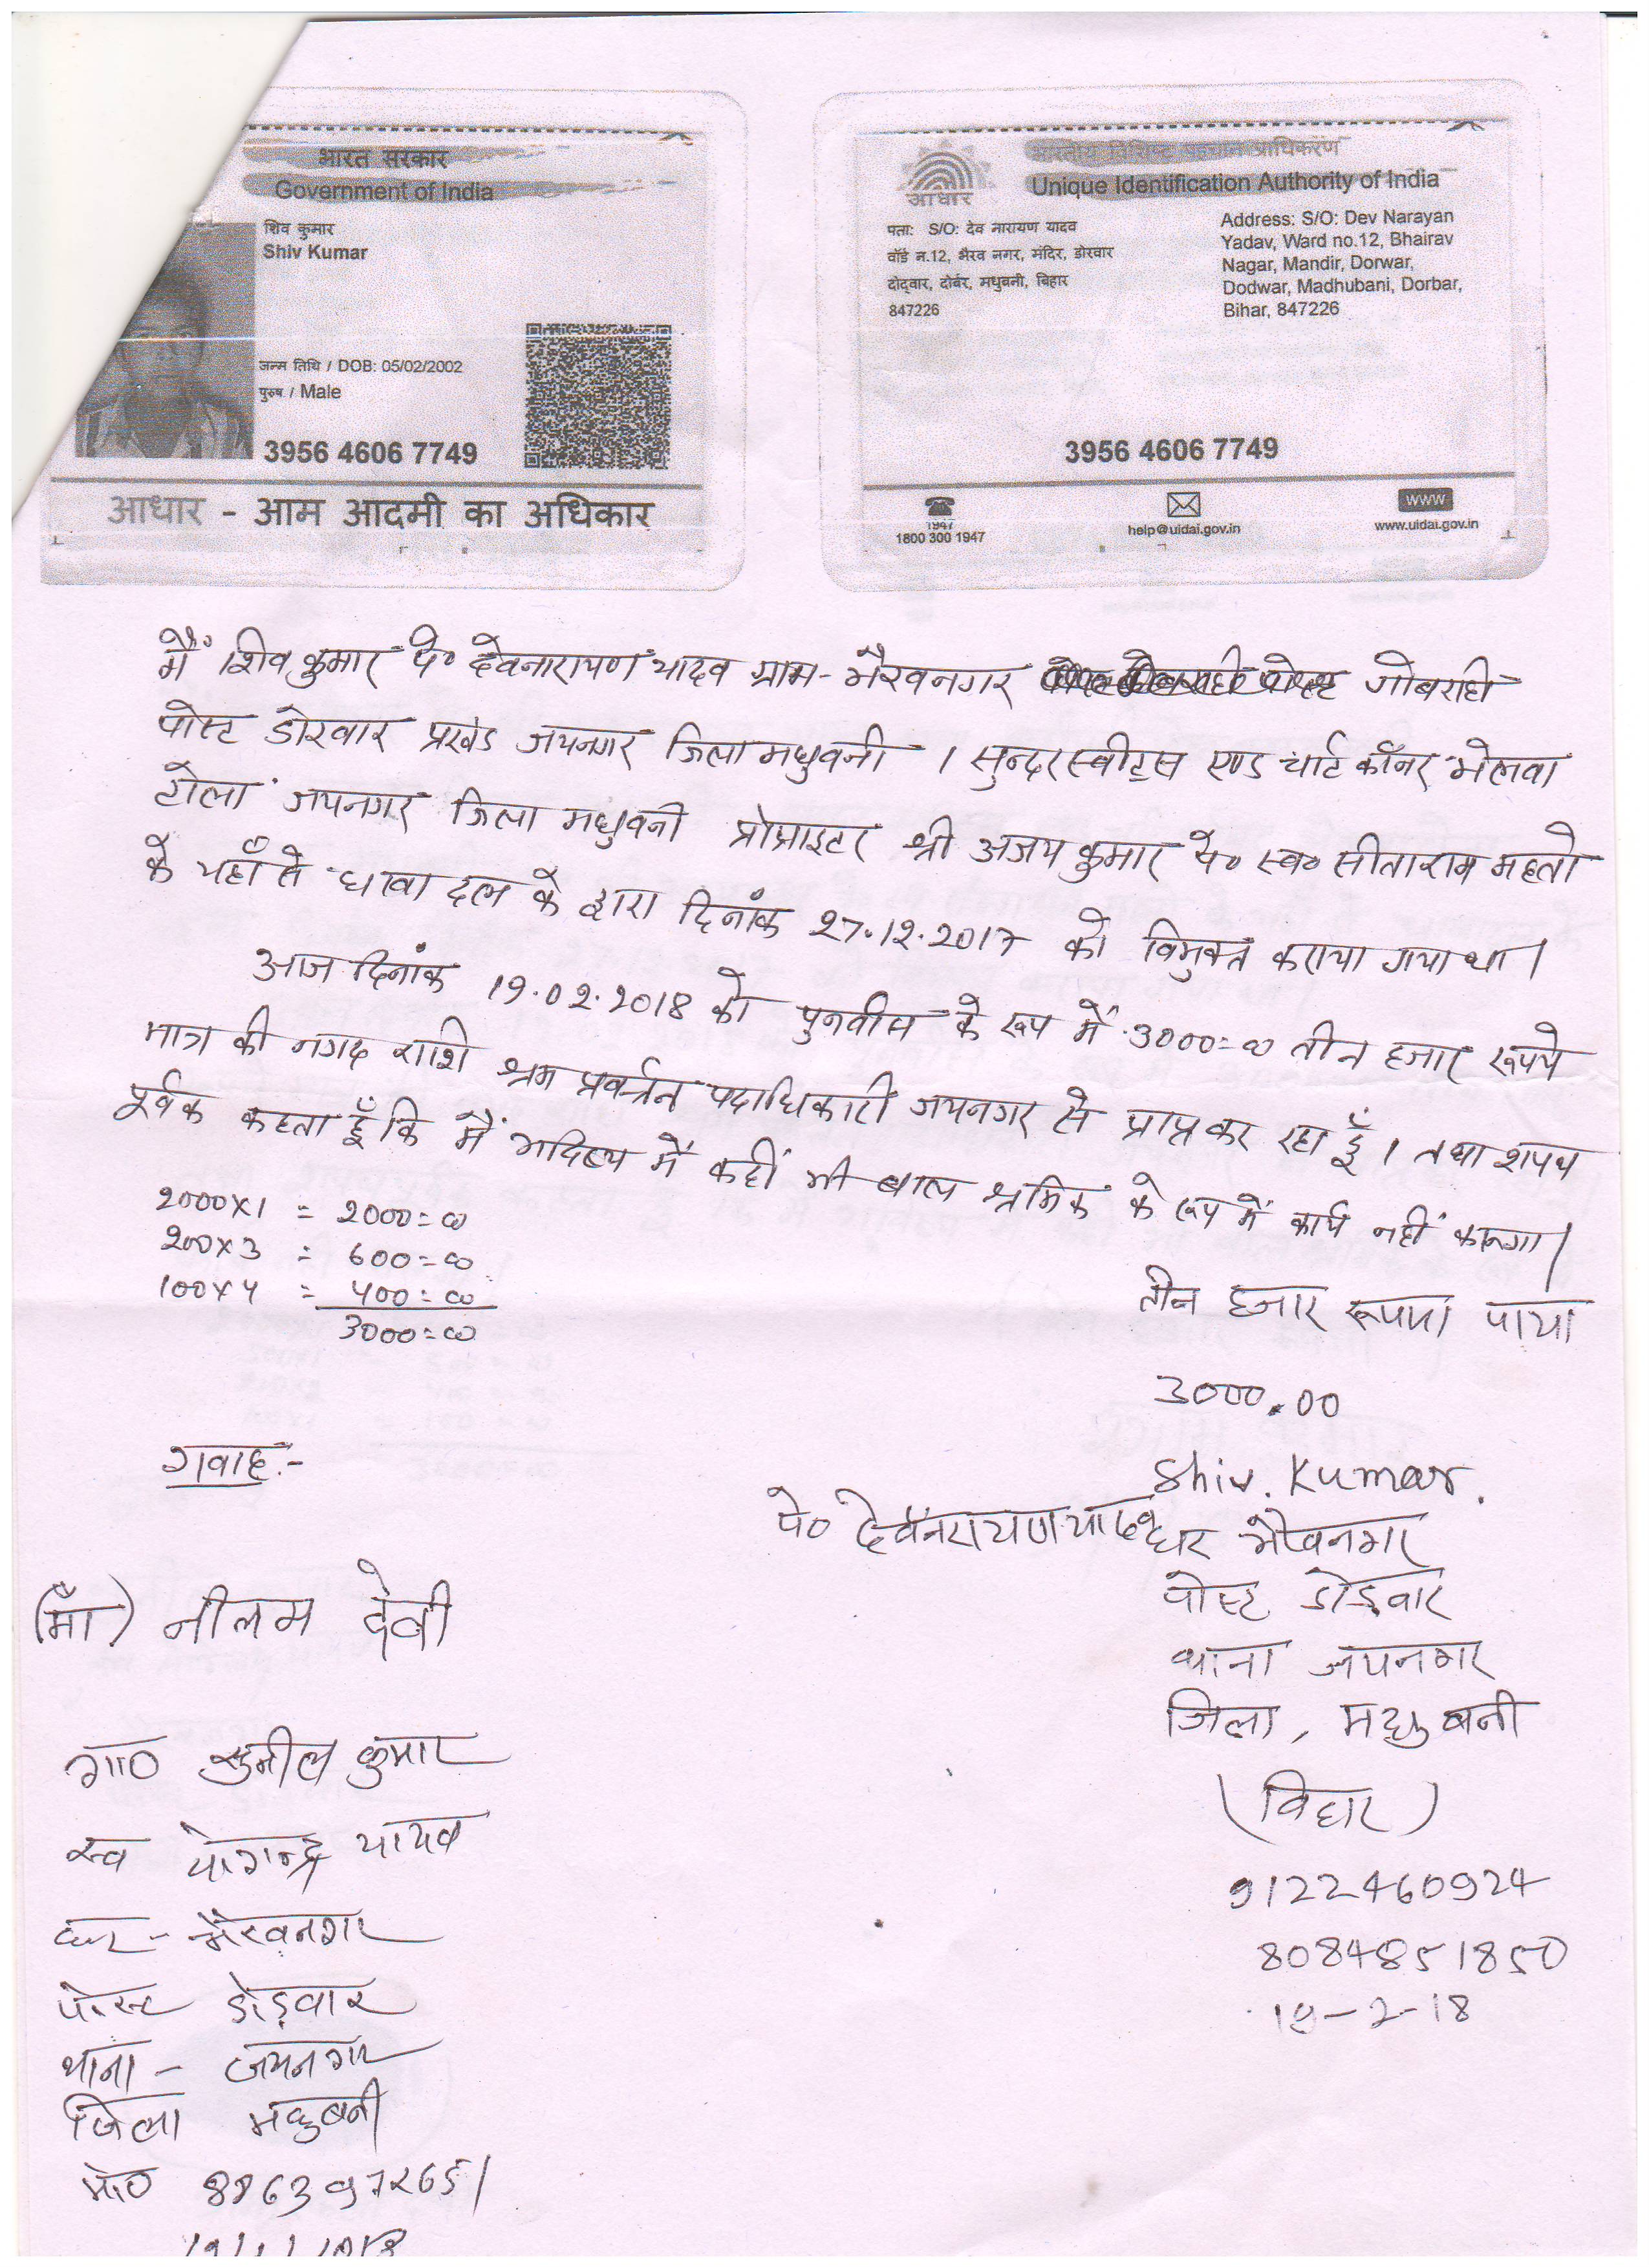 भारत सरकार
Government of India
शिव कुमार
Shiv Kumar
जन्म तिथि / DOB: 05/02/2002
पुरुष / Male
3956 4606 7749
आधार - आम आदमी का अधिकार
भारतीय विशिष्ट पहचान प्राधिकरण
Unique Identification Authority of India
आधार
पता: S/O: देव नारायण यादव
वॉर्ड न.12, भैरव नगर, मंदिर, डोरवार
दोद्वार, दोर्बर, मधुबनी, बिहार
847226
Address: S/O: Dev Narayan
Yadav, Ward no.12, Bhairav
Nagar, Mandir, Dorwar,
Dodwar, Madhubani, Dorbar,
Bihar, 847226
3956 4606 7749
1947
1800 300 1947
help@uidai.gov.in
www
www.uidai.gov.in
मैं शिव कुमार पे० देवनारायण यादव ग्राम- भैरवनगर गोबराही
पोस्ट डोरवार प्रखंड जयनगर जिला मधुवनी । सुन्दर स्वीट्स एण्ड चार्ट कॉनर मेलवा
टोला जयनगर जिला मधुवनी प्रोप्राइटर श्री अजय कुमार पे० स्व० सीताराम महतो
के यहाँ से धावा दल के द्वारा दिनांक 27.12.2017 को विमुक्त कराया गया था।
आज दिनांक 19.02.2018 को पुनर्वास के रूप में 3000=00 तीन हजार रूपये
मात्र की नगद राशि श्रम प्रवर्त्तन पदाधिकारी जयनगर से प्राप्त कर रहा हूँ। तथा शपथ
पूर्वक कहता हूँ कि मैं भविष्य में कहीं भी बाल श्रमिक के रूप में कार्य नहीं करूंगा।
2000x1 = 2000=00
200x3 = 600=00
100x4 = 400=00
3000=00
तीन हजार रूपया पाया
3000.00
गवाह:-
Shiv. Kumar.
पे० देवनरायण यादव घर भैरवनगर
पोस्ट डोड़वार
थाना जयनगर
जिला, मधुबनी
(बिहार)
9122460924
8084851850
19-2-18
(माँ) नीलम देवी
सुनील कुमार
स्व योगेन्द्र यादव
घर - भैरवनगर
पोस्ट डोड़वार
थाना - जयनगर
जिला मधुबनी
मो०